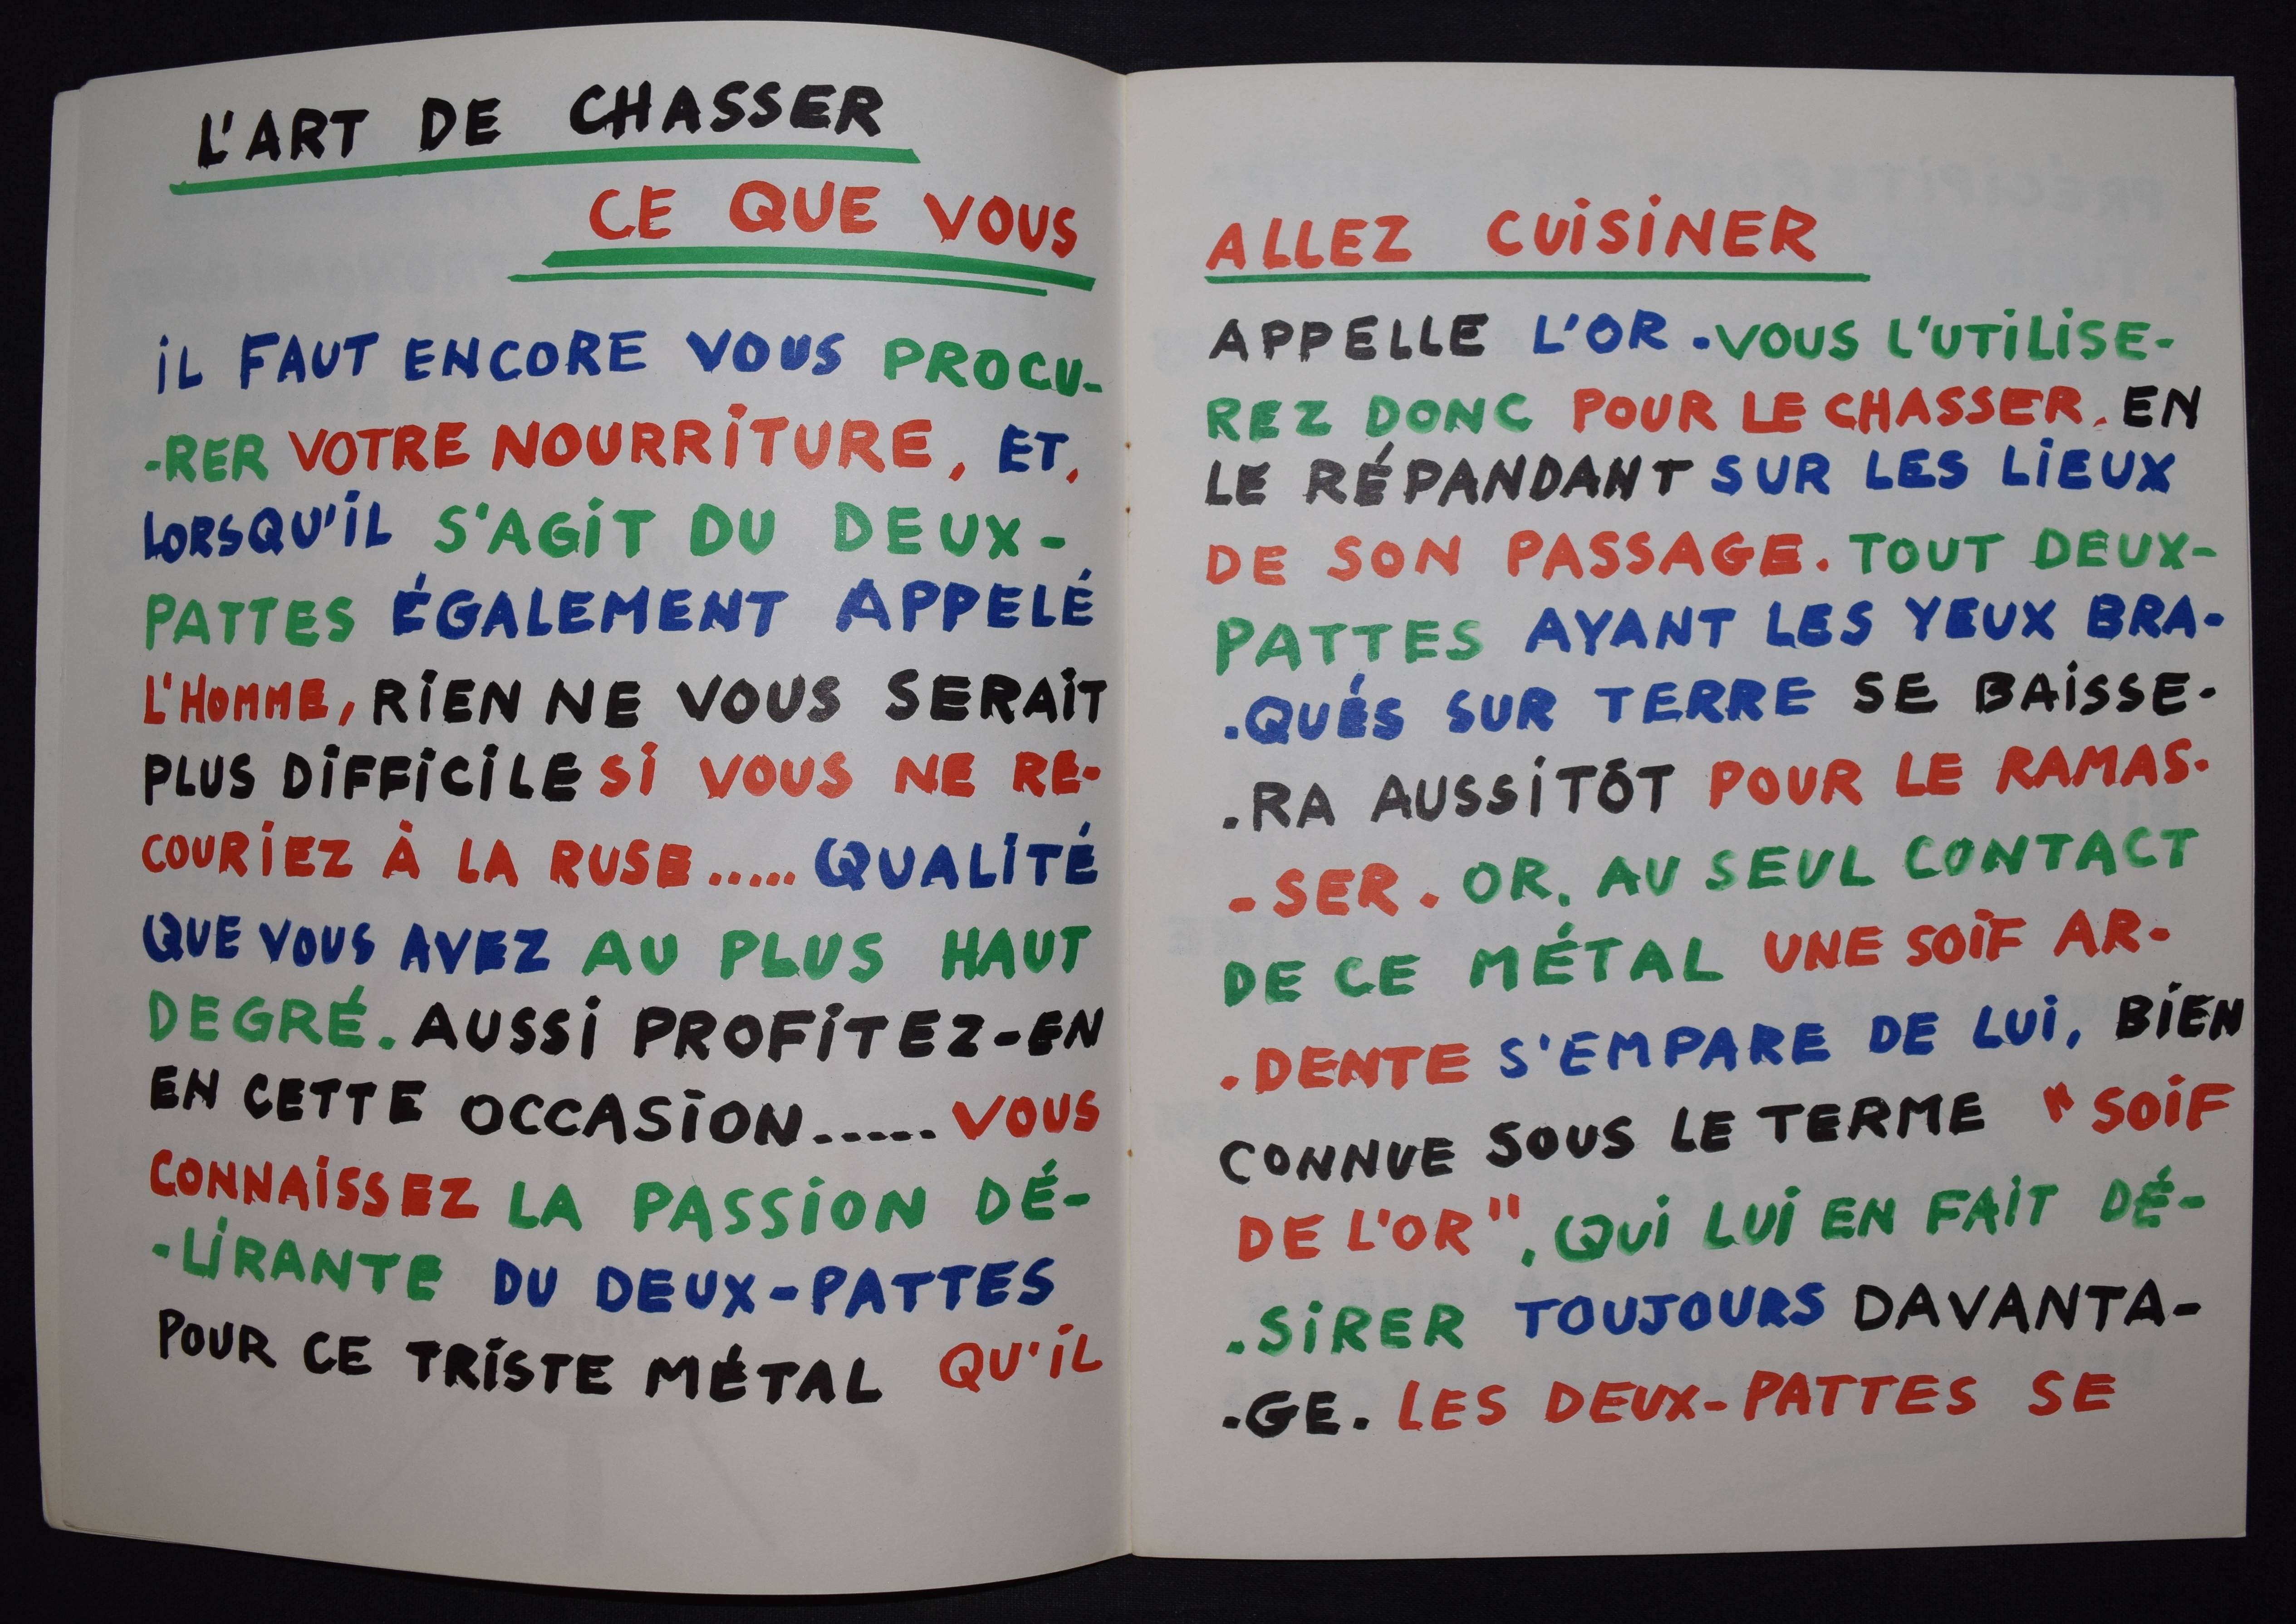 L'ART DE CHASSER
CE QUE VOUS
iL FAUT ENCORE VOUS PROCU-
-RER VOTRE NOURRiTURE, ET,
LORSQU'iL S'AGiT DU DEUX-
PATTES ÉGALEMENT APPELÉ
L'HOMME, RiEN NE VOUS SERAiT
PLUS DiFFiCiLE Si VOUS NE RE-
COURiEZ À LA RUSE..... QUALiTÉ
QUE VOUS AVEZ AU PLUS HAUT
DEGRÉ. AUSSi PROFiTEZ-EN
EN CETTE OCCASiON..... VOUS
CONNAiSSEZ LA PASSiON DÉ-
-LiRANTE DU DEUX-PATTES
POUR CE TRiSTE MÉTAL QU'iL
ALLEZ CUiSiNER
APPELLE L'OR. VOUS L'UTiLiSE-
REZ DONC POUR LE CHASSER. EN
LE RÉPANDANT SUR LES LiEUX
DE SON PASSAGE. TOUT DEUX-
PATTES AYANT LES YEUX BRA-
-QUÉS SUR TERRE SE BAiSSE-
-RA AUSSiTÔT POUR LE RAMAS-
-SER. OR, AU SEUL CONTACT
DE CE MÉTAL UNE SOiF AR-
-DENTE S'EMPARE DE LUi, BiEN
CONNUE SOUS LE TERME "SOiF
DE L'OR", QUi LUi EN FAiT DÉ-
-SiRER TOUJOURS DAVANTA-
-GE. LES DEUX-PATTES SE